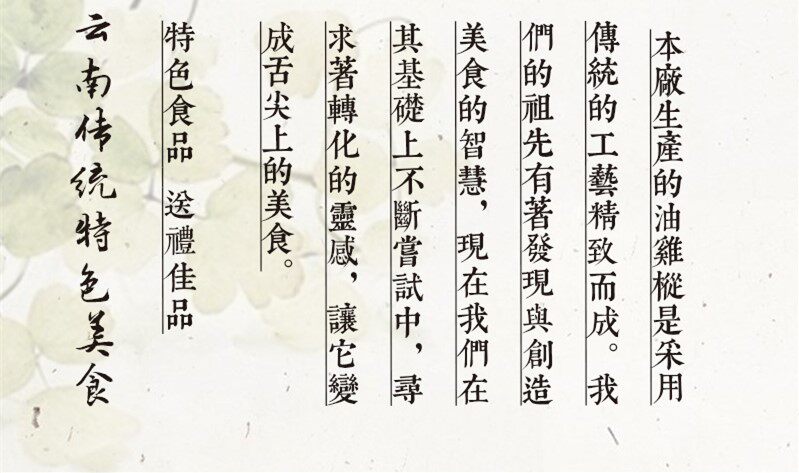 本廠生產的油雞樅是采用
傳統的工藝精致而成。我
們的祖先有著發現與創造
美食的智慧，現在我們在
其基礎上不斷嘗試中，尋
求著轉化的靈感，讓它變
成舌尖上的美食。
特色食品 送禮佳品
云南传统特色美食